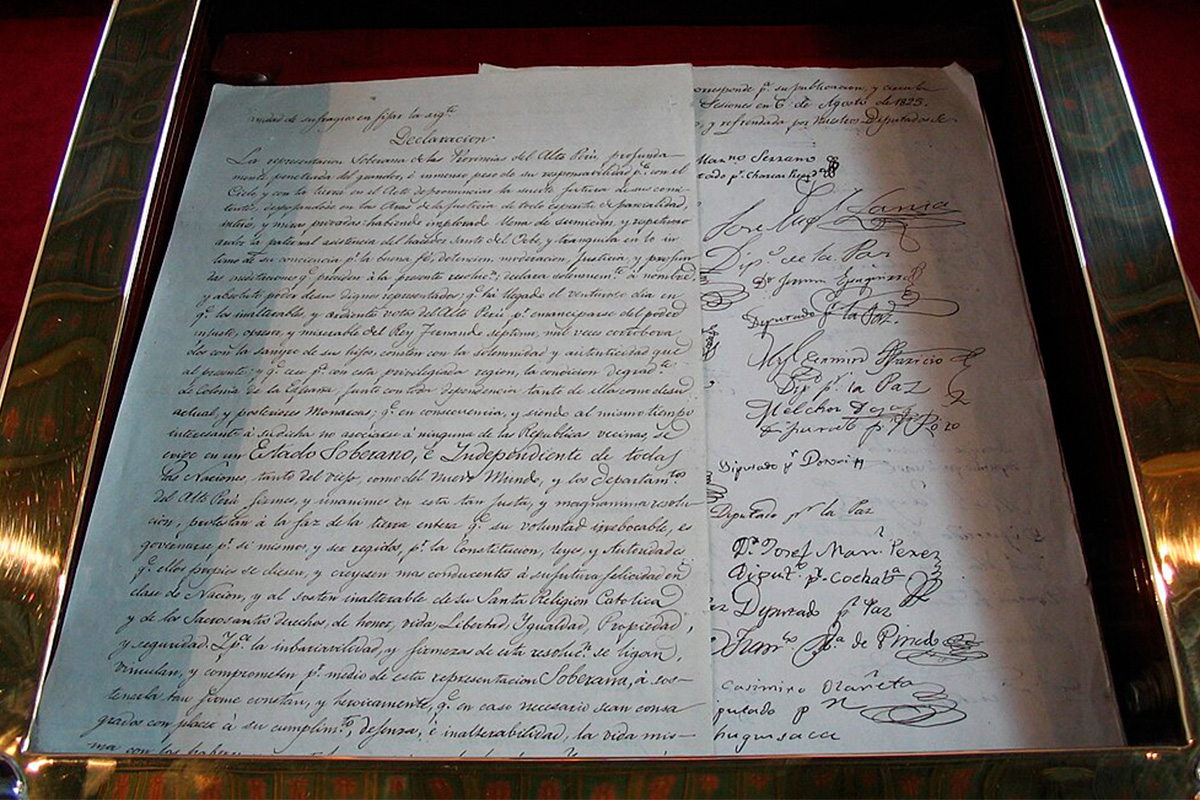 midad de sufragios en fijar la sigte
Declaracion
La representacion Soberana de las Provincias del Alto Perú, profunda-
mente penetrada del grandor, é inmenso peso de su responsabilidad pa. con el
Cielo, y con la tierra en el Acto de pronunciar la suerte futura de sus comi-
tentes, despojandose en las Aras de la Justicia de todo espiritu de parcialidad,
interes, y miras privadas habiendo implorado llena de sumicion, y respetuoso
ardor la paternal asistencia del hacedor Santo del Orbe, y tranquila en lo in-
timo de su conciencia pr. la buena fé, detencion, moderacion, Justicia, y profun-
das meditaciones qe. preciden á la presente resolucn., declara solemnemte. á nombre,
y absoluto poder de sus dignos representados; qe. há llegado el venturoso dia en
qe. los inalterables, y ardientes votos del Alto Perú pr. emanciparse del poder
injusto, opresor, y miserable del Rey Fernando septimo, mil veces corrobora-
dos con la sangre de sus hijos, consten con la solemnidad y autenticidad que
al presente, y qe. cese pa. con esta privilegiada region, la condicion degradte.
de Colonia de la España, junto con toda dependencia tanto de ella como de su
actual, y posteriores Monarcas; qe. en consecuencia, y siendo al mismo tiempo
interesante á su dicha no asociarse á ninguna de las Republicas vecinas se
erige en un Estado Soberano, é Independiente de todas
las Naciones, tanto del viejo, como del Nuevo Mundo, y los Departamtos
del Alto Perú firmes, y unanimes en esta tan justa, y magnanima resolu-
cion, protestan á la faz de la tierra entera qe. su voluntad irrebocable, es
governarse pr. si mismos, y ser regidos, pr. la Constitucion, leyes, y Autoridades
qe. ellos propios se diesen, y creyesen mas conducentes á su futura felicidad en
clase de Nacion, y al sosten inalterable de su Santa Religion Catolica
y de los Sacrosantos derechos, de honor, vida, Libertad, Igualdad, Propiedad,
y seguridad. Y pa. la inbariavilidad, y firmeza de esta resolucn. se ligan,
vinculan, y comprometen pr. medio de esta representacion Soberana, á sos-
tenerla tan firme, constan, y heroicamente, qe. en caso necesario sean consa-
grados con placer á su cumplimto., defensa, é inalterabilidad, la vida mis-
ma con los haberes
orresponde pa. su publicacion, y circula
Sesiones en 6 de Agosto de 1825.
y refrendada por nuestros Diputados Se
Marno Serrano
tado pr. Charcas
José Migl Lanza
Dipo. de la Paz
Dr
Deputado pr. la Paz.
Aparicio
Dip pr. la Paz
Melchor
pr Po
Diputado pr
Diputado pr la Paz
Dn. Josef Marn. Perez
Diputo. pr. Cochaba
Deputado pr Paz
Franco Ma. de Pinedo
Casimiro Olañeta
putado p
huquisaca